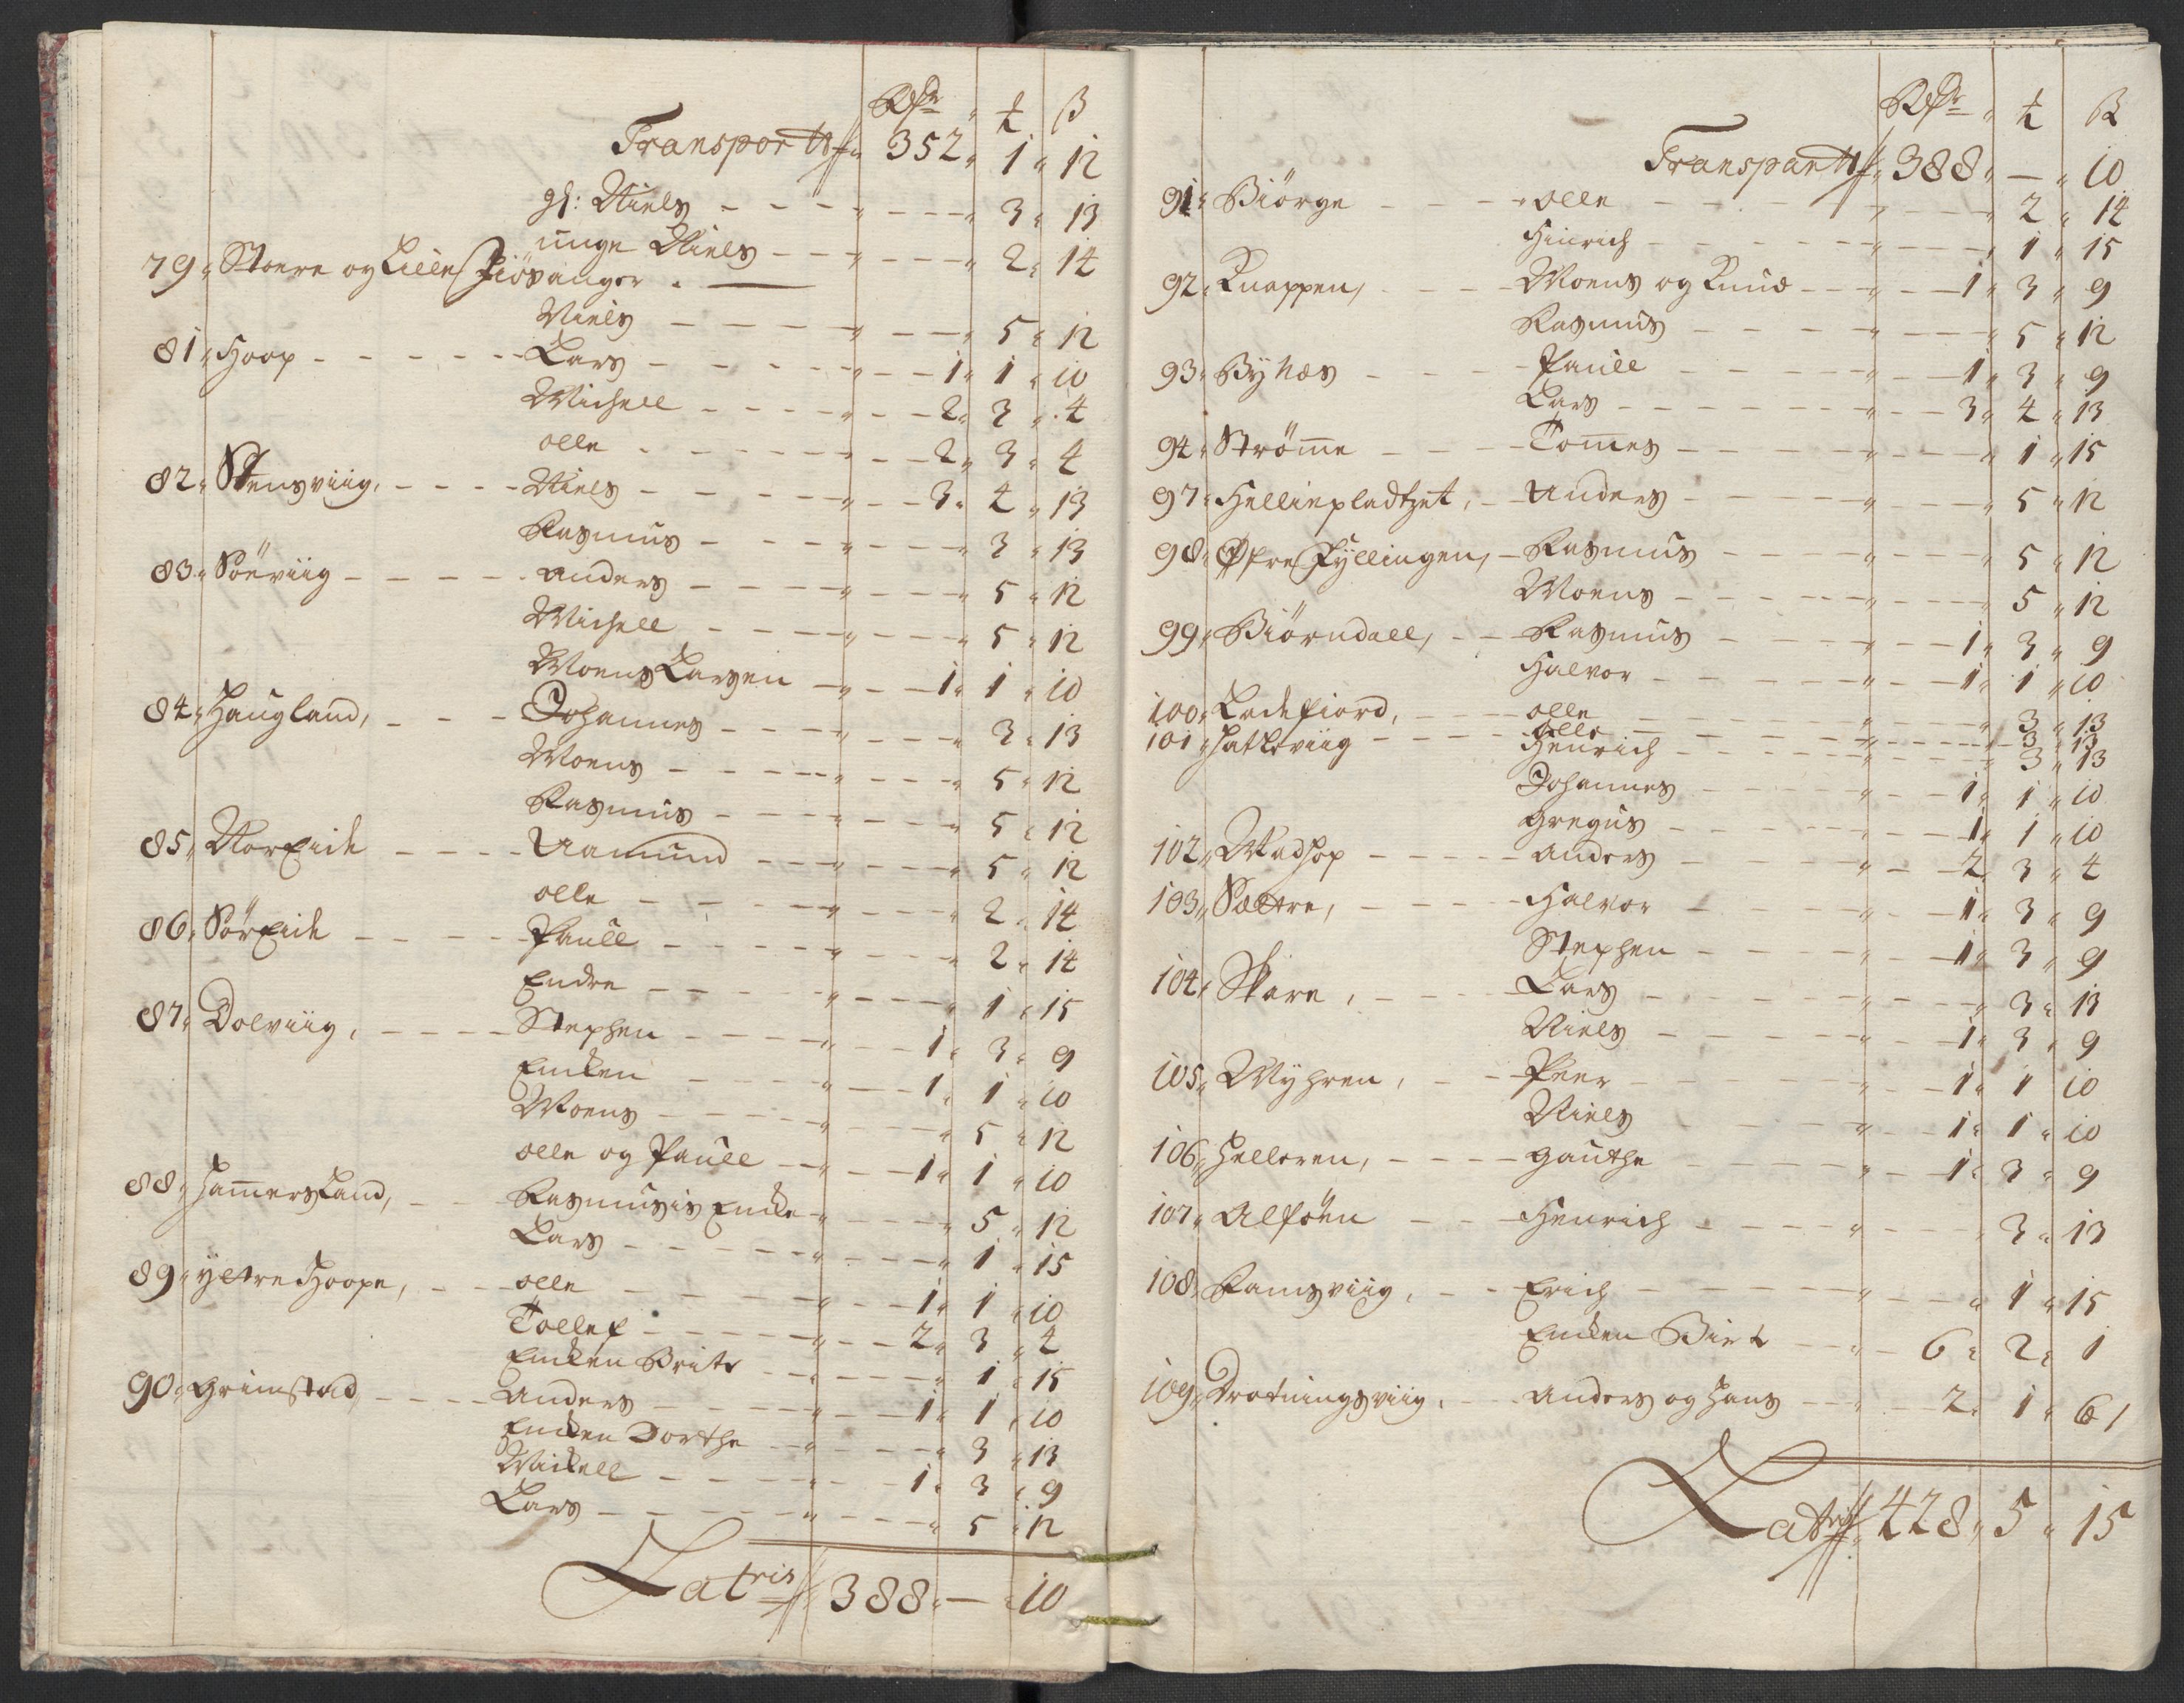 Rdr " ₶ " ß
Transport 352 " 1 " 12
gl: Niels - - - " - - - " 3 " 13
unge Niels - - - " - - - " 2 " 14
79 " Stoere og Lille Fiösanger . —
Niels - - - - " - - - " 5 " 12
81 " Hoop - - - - - Lars - - - - " - - 1 " 1 " 10
Michell - - - - " - - 2 " 3 " 4
olle - - - - - " - - 2 " 3 " 4
82 " Stensviig, - - - - Niels - - - - " - - 3 " 4 " 13
Rasmus - - - " - - - " 3 " 13
83 " Söreviig - - - - - anders - - - - " - - - " 5 " 12
Michell - - - - " - - - " 5 " 12
Moens Larsen - " - - 1 " 1 " 10
84 " Haugland, - - - Johannes - - - " - - - " 3 " 13
Moens - - - - " - - - " 5 " 12
Rasmus - - - - " - - - " 5 " 12
85 " Nor Eide - - - - Aamund - - - " - - - " 5 " 12
olle - - - - " - - - " 2 " 14
86 " Sör Eide - - - - - Paull - - - - " - - - " 2 " 14
Endre - - - - " - - - " 1 " 15
87 " Dolviig, - - - - Stephen - - - - " - - 1 " 3 " 9
Encken - - - " - - 1 " 1 " 10
Moens - - - - " - - - " 5 " 12
olle og Paull - - " - - 1 " 1 " 10
88 " Hamersland, - - Rasmusis Encke - " - - - " 5 " 12
Lars - - - - " - - - " 1 " 15
89 " yttre Hoope, - - olle - - - - " - - 1 " 1 " 10
Tollef - - - - " - - 2 " 3 " 4
Encken Brite - - " - - - " 1 " 15
90 " Grimstad - - - - Anders - - - " - - 1 " 1 " 10
Encken Dorthe - " - - - " 3 " 13
Mickell - - - - " - - 1 " 3 " 9
Lars - - - - " - - - " 5 " 12
Latris 388 " — " 10
Rdr " ₶ ß
Transport 388 " — " 10
91 " Biörge - - - - olle - - - - " - - - " 2 " 14
Hinrich - - - - " - - - " 1 " 15
92 " Knappen, - - - - Moens og Knud - - " - - 1 " 3 " 9
Rasmus - - - - " - - - " 5 " 12
93 " Bynæs - - - - Paull - - - - " - - 1 " 3 " 9
Lars - - - - " - - 3 " 4 " 13
94 " Strömme - - - - Tommes - - - - " - - - " 1 " 15
97 " Hellinepladtzet, - Anders - - - - " - - - " 5 " 12
98 " Öfre Fyllingen, - Rasmus - - - " - - - " 5 " 12
Moens - - - - " - - - " 5 " 12
99 " Biörndall, - - Rasmus - - - " - - 1 " 3 " 9
Halvor - - - - " - - 1 " 1 " 10
100 " Ladefiord, - - - - olle - - - - " - - - " 3 " 13
101 " Hatleviig - - - - olle - - - - " - - - " 3 " 13
Henrich - - - - " - - - " 3 " 13
Johannes - - - - " - - 1 " 1 " 10
Gregus - - - - " - - 1 " 1 " 10
102 " Wadhop - - - - - anders - - - - " - - 2 " 3 " 4
103 " Sættre, - - - - Halvor - - - - " - - 1 " 3 " 9
Stephen - - - - " - - 1 " 3 " 9
104 " Skare, - - - - Lars - - - - " - - - " 3 " 13
Niels - - - - " - - 1 " 3 " 9
105 " Myhren, - - - Peer - - - - " - - 1 " 1 10
Niels - - - - " - - 1 " 1 " 10
106 " Helleren, - - - - gauthe - - - - " - - 1 " 3 " 9
107 " Alföen - - - Henrich - - - - " - - - 3 " 13
108 " Ramsviig, - - - Erich - - - - " - - - " 1 " 15
Encken Birt - - " - 6 " 2 " 1
109 " Drotningsviig, - - anders og Hans - - " - - 2 " 1 " 6 /
Latris 428 " 5 " 15